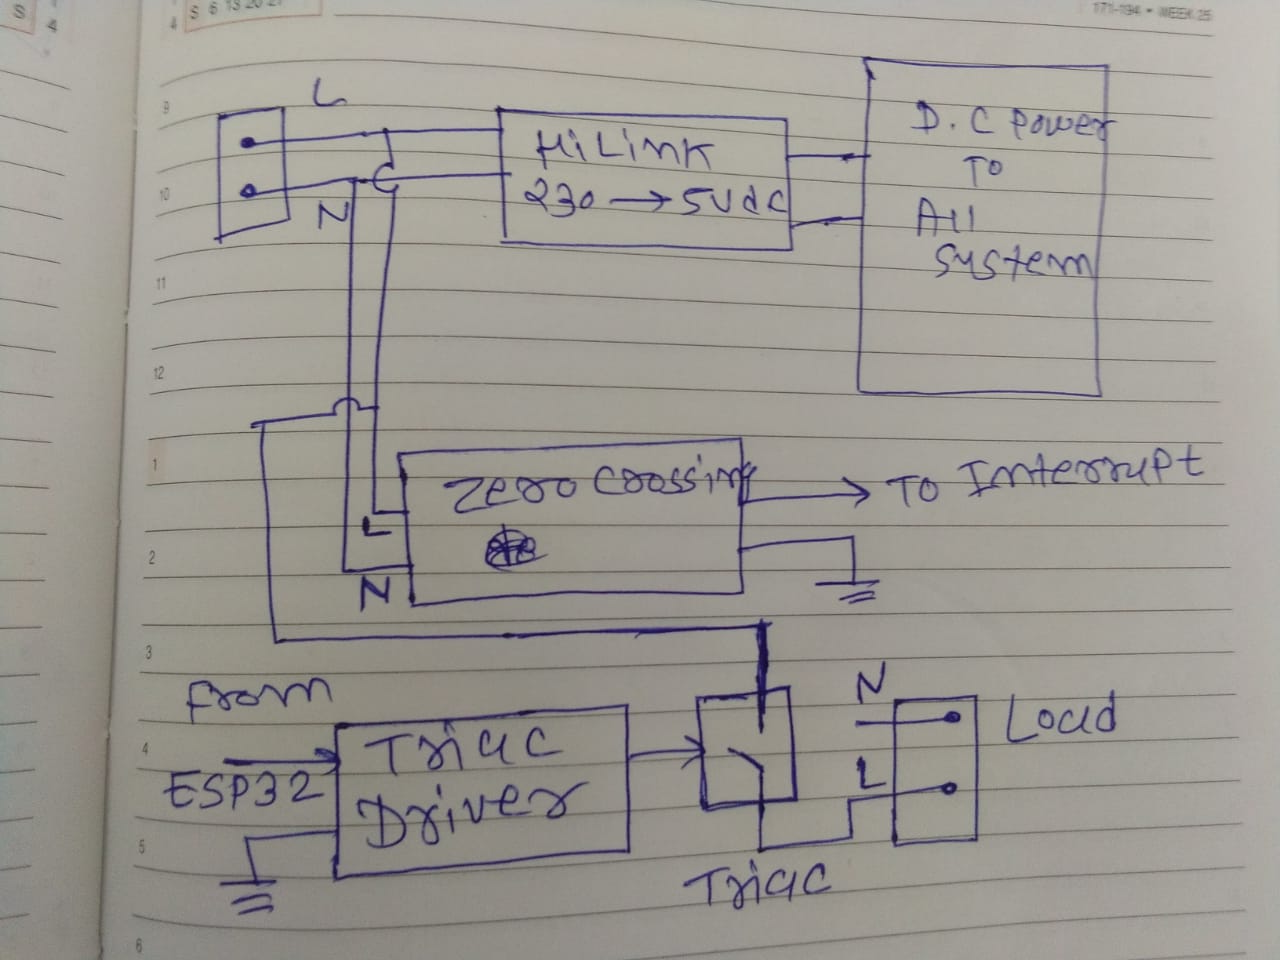 S 6 13 20 27
4
S
4
171-194 • WEEK 25
9
L
D.C power
HiLink
TO
10
230 → 5Vdc
All
N
system
11
12
1
Zero Crossing
TO Interrupt
L
2
N
3
from
N
Load
4
Triac
L
ESP32
Driver
5
Triac
6